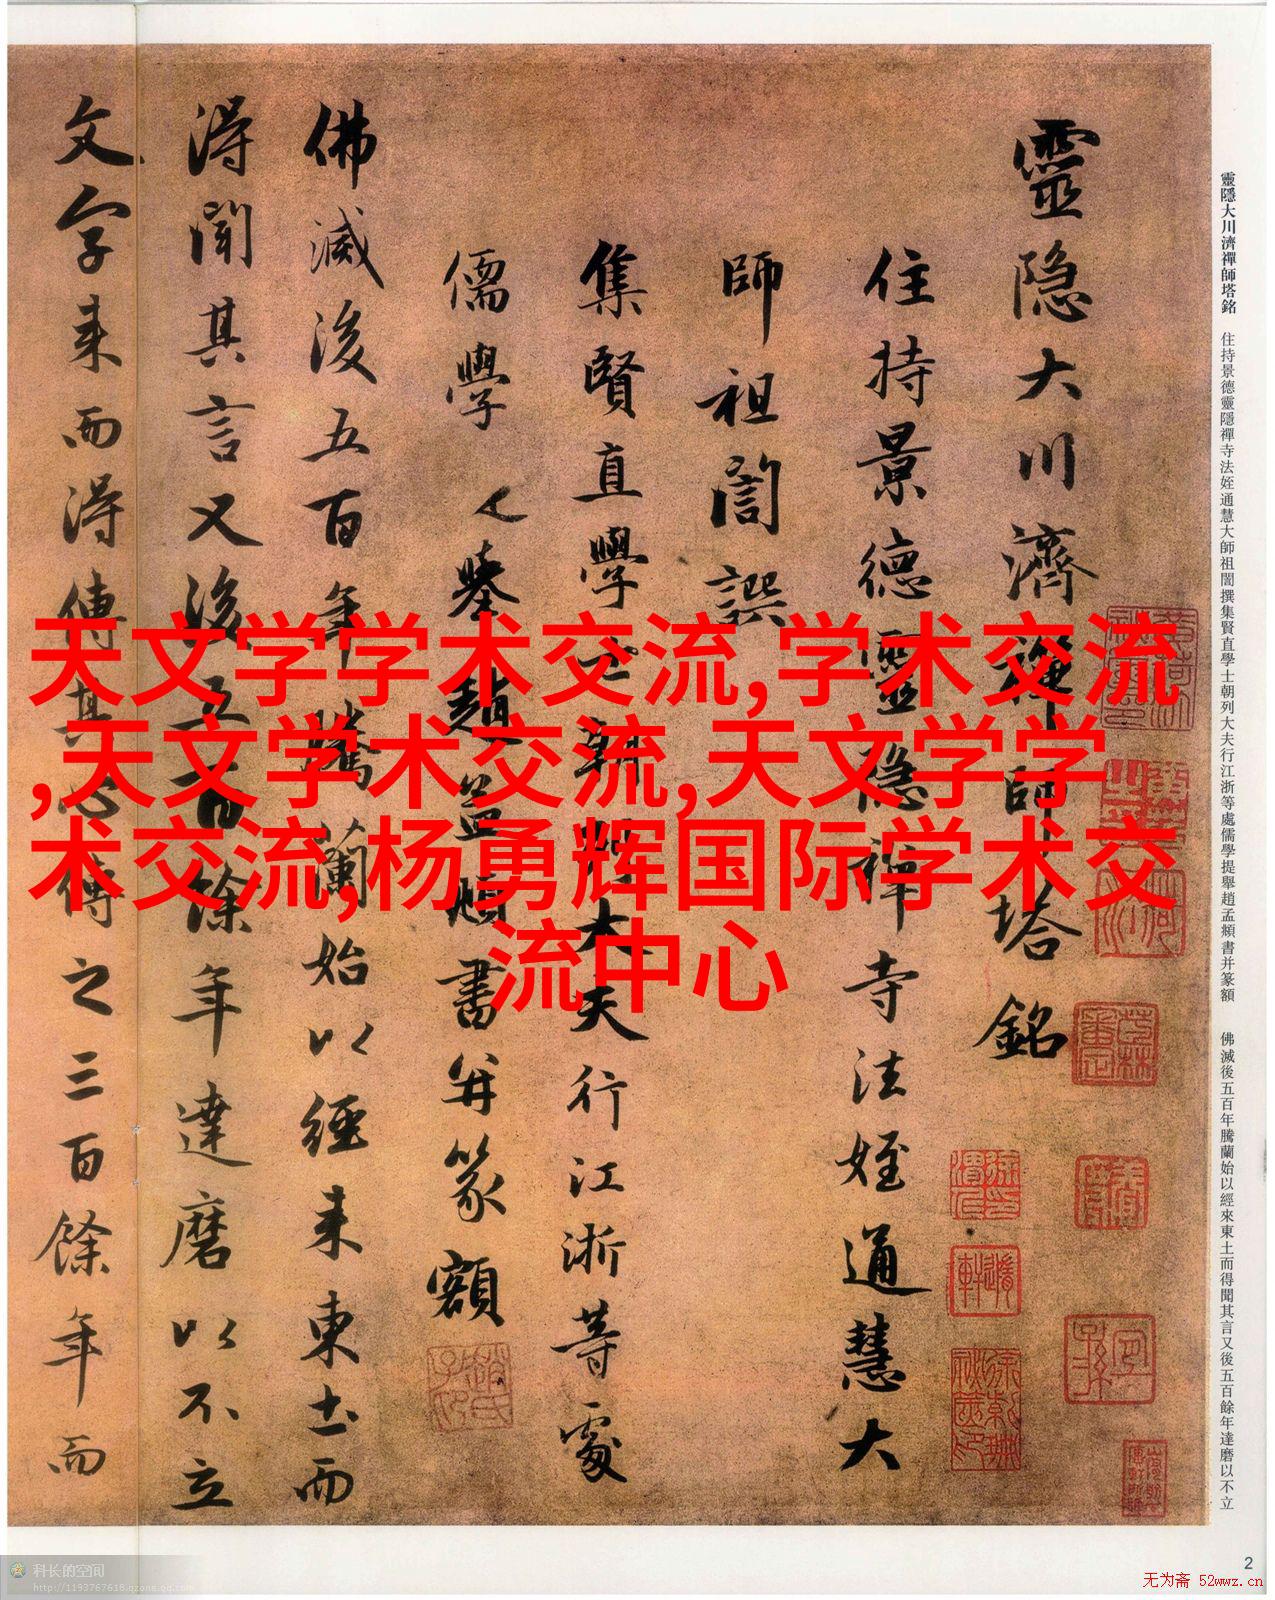 靈隐大川濟禪師塔銘
住持景德靈隐禪寺法姪通慧大
師祖誾譔
集賢直學士朝列大夫行江浙等處
儒學提舉趙孟頫書并篆額
佛滅後五百年騰蘭始以經來東土而
得聞其言又後五百餘年達磨以不立
文字来而得傳其心傳之三百餘年而
靈隱大川濟禪師塔銘 住持景德靈隱禪寺法姪通慧大師祖誾撰集賢直學士朝列大夫行江浙等處儒學提舉趙孟頫書并篆額 佛滅後五百年騰蘭始以經來東土而得聞其言又後五百餘年達磨以不立
天文学学术交流,学术交流
,天文学术交流,天文学学
术交流,杨勇辉国际学术交
流中心
2
科长的空间
http://1193767618.qzone.qq.com
无为斋 52wwz.cn